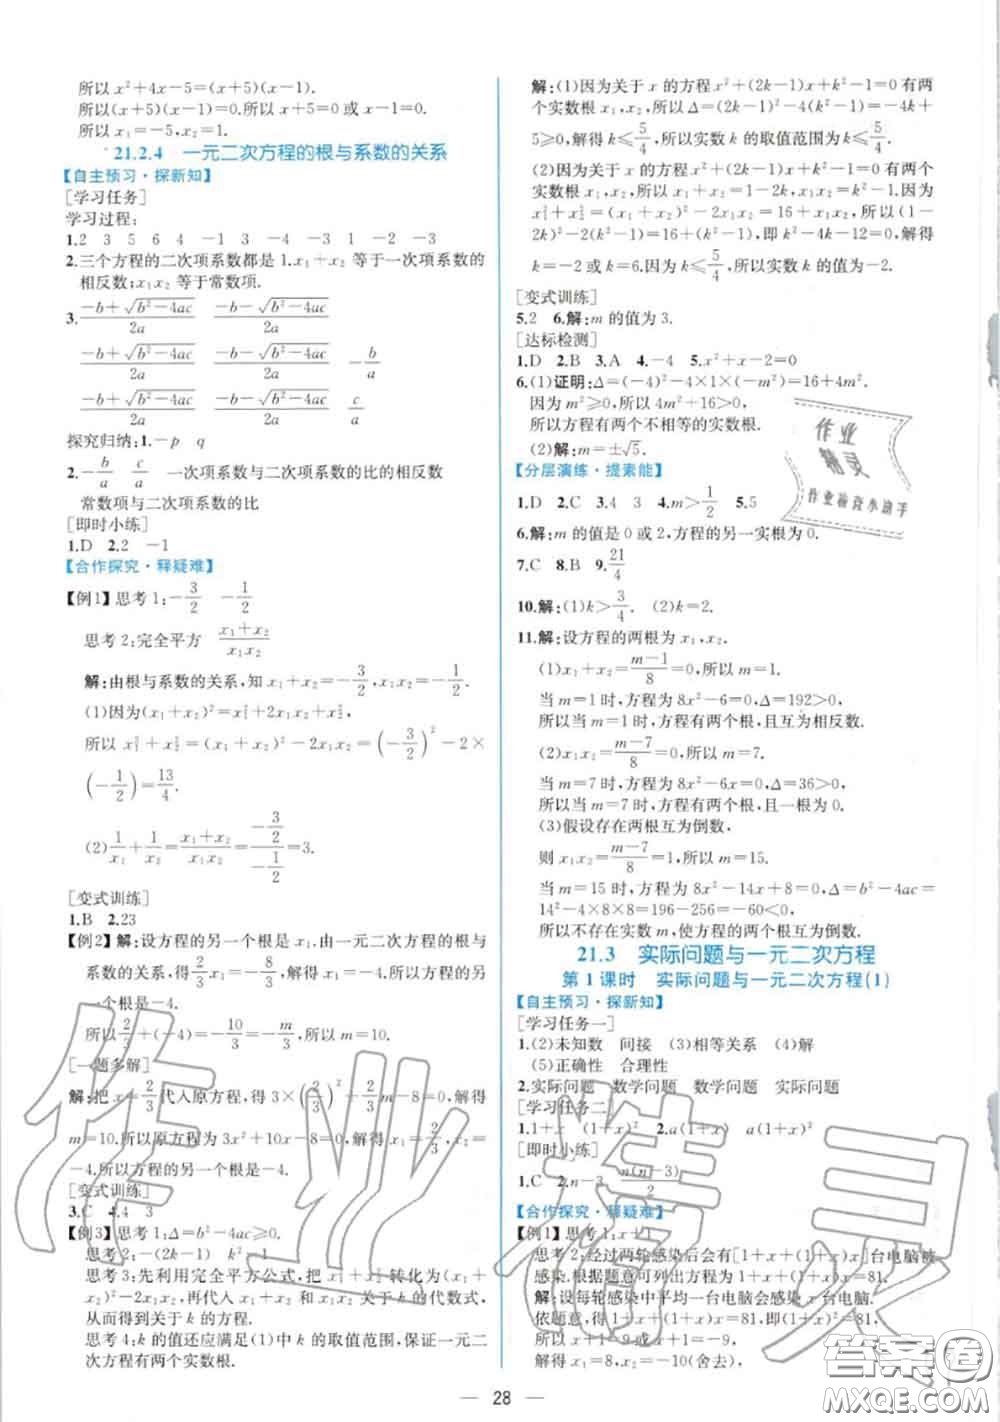 所以 x²+4x-5=(x+5)(x-1).
所以(x+5)(x-1)=0.所以x+5=0 或 x-1=0.
所以 x₁=-5,x₂=1.
21.2.4 一元二次方程的根与系数的关系
【自主预习·探新知】
[学习任务]
学习过程:
1.2 3 5 6 4 -1 3 -4 -3 1 -2 -3
2.三个方程的二次项系数都是 1.x₁+x₂ 等于一次项系数的
相反数;x₁x₂ 等于常数项.
3. (-b+√(b²-4ac))/2a (-b-√(b²-4ac))/2a
(-b+√(b²-4ac))/2a (-b-√(b²-4ac))/2a -b/a
(-b+√(b²-4ac))/2a (-b-√(b²-4ac))/2a c/a
探究归纳:1.-p q
2.-b/a c/a 一次项系数与二次项系数的比的相反数
常数项与二次项系数的比
[即时小练]
1.D 2.2 -1
【合作探究·释疑难】
【例1】思考1:-3/2 -1/2
思考2:完全平方 (x₁+x₂)/(x₁x₂)
解:由根与系数的关系,知 x₁+x₂=-3/2,x₁x₂=-1/2.
(1)因为(x₁+x₂)²=x₁²+2x₁x₂+x₂²,
所以 x₁²+x₂²=(x₁+x₂)²-2x₁x₂=(-3/2)²-2×
(-1/2)=13/4.
(2)1/x₁+1/x₂=(x₁+x₂)/(x₁x₂)=(-3/2)/(-1/2)=3.
[变式训练]
1.B 2.23
【例2】解:设方程的另一个根是 x₁,由一元二次方程的根与
系数的关系,得 2/3 x₁=-8/3,解得 x₁=-4.所以方程的另一
个根是-4.
所以 2/3+(-4)=-10/3=-m/3,所以 m=10.
[一题多解]
解:把 x=2/3 代入原方程,得 3×(2/3)²+2/3m-8=0,解得
m=10.所以原方程为 3x²+10x-8=0,解得 x₁=2/3,x₂=
-4.所以方程的另一个根是-4.
[变式训练]
3.C 4.4 3
【例3】思考1:Δ=b²-4ac≥0.
思考2:-(2k-1) k²-1
思考3:先利用完全平方公式,把 x₁²+x₂² 转化为(x₁+
x₂)²-2x₁x₂,再代入 x₁+x₂ 和 x₁x₂ 关于 k 的代数式,
从而得到关于 k 的方程.
思考4:k 的值还应满足(1)中 k 的取值范围,保证一元二
次方程有两个实数根.
解:(1)因为关于 x 的方程 x²+(2k-1)x+k²-1=0 有两
个实数根 x₁,x₂,所以Δ=(2k-1)²-4(k²-1)=-4k+
5≥0,解得 k≤5/4,所以实数 k 的取值范围为 k≤5/4.
(2)因为关于 x 的方程 x²+(2k-1)x+k²-1=0 有两个
实数根 x₁,x₂,所以 x₁+x₂=1-2k,x₁x₂=k²-1.因为
x₁²+x₂²=(x₁+x₂)²-2x₁x₂=16+x₁x₂,所以(1-
2k)²-2(k²-1)=16+(k²-1),即 k²-4k-12=0,解得
k=-2 或 k=6.因为 k≤5/4,所以实数 k 的值为-2.
[变式训练]
5.2 6.解:m 的值为 3.
[达标检测]
1.D 2.B 3.A 4.-4 5.x²+x-2=0
6.(1)证明:Δ=(-4)²-4×1×(-m²)=16+4m².
因为 m²≥0,所以 4m²+16>0.
所以方程有两个不相等的实数根.
(2)解:m=±√5.
【分层演练·提素能】
1.D 2.C 3.4 3 4.m>1/2 5.5
6.解:m 的值是 0 或 2,方程的另一实根为 0.
7.C 8.B 9.21/4
10.解:(1)k>3/4. (2)k=2.
11.解:设方程的两根为 x₁,x₂.
(1)x₁+x₂=(m-1)/8=0,所以 m=1.
当 m=1 时,方程为 8x²-6=0,Δ=192>0,
所以当 m=1 时,方程有两个根,且互为相反数.
(2)x₁x₂=(m-7)/8=0,所以 m=7.
当 m=7 时,方程为 8x²-6x=0,Δ=36>0,
所以当 m=7 时,方程有两个根,且有一个根为 0.
(3)假设存在两根互为倒数,
则 x₁x₂=(m-7)/8=1,所以 m=15.
当 m=15 时,方程为 8x²-14x+8=0,Δ=b²-4ac=
14²-4×8×8=196-256=-60<0,
所以不存在实数 m,使方程的两个根互为倒数.
21.3 实际问题与一元二次方程
第1课时 实际问题与一元二次方程(1)
【自主预习·探新知】
[学习任务一]
1.(2)未知数 间接 (3)相等关系 (4)解
(5)正确性 合理性
2.实际问题 数学问题 数学问题 实际问题
[学习任务二]
1.1+x (1+x)² 2.a(1+x) a(1+x)²
[即时小练]
1.C 2.n(n-3)/2
【合作探究·释疑难】
【例1】思考1:x+1
思考2:经过两轮感染后会有[1+x+(1+x)x]台电脑被
感染.根据题意可列出方程为 1+x+(1+x)x=81.
解:设每轮感染中平均一台电脑会感染 x 台电脑.
依题意,得 1+x+(1+x)x=81,即(1+x)²=81,
所以 x+1=9 或 x+1=-9,
解得 x₁=8,x₂=-10(舍去),
28
作业
精灵
作业检查小助手
作业精灵
答案圈
MXQE.COM